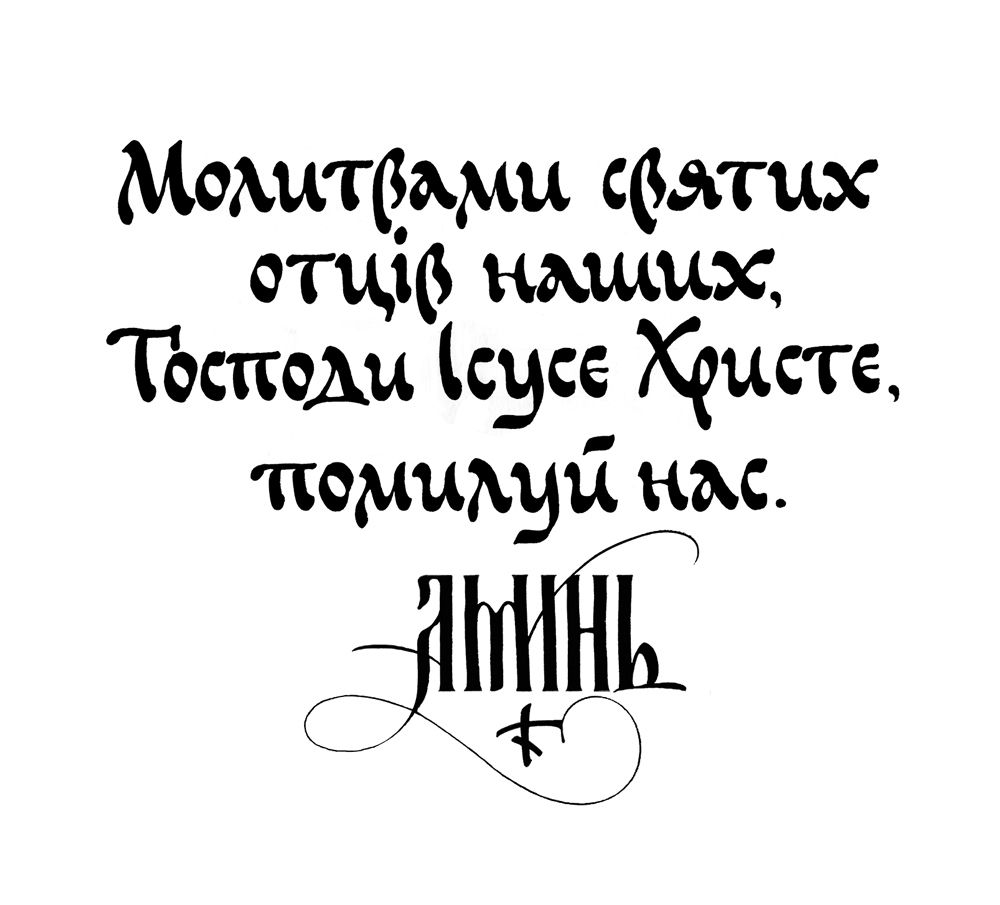 Молитвами святих
отців наших,
Господи Ісусе Христе,
помилуй нас.
Аминь